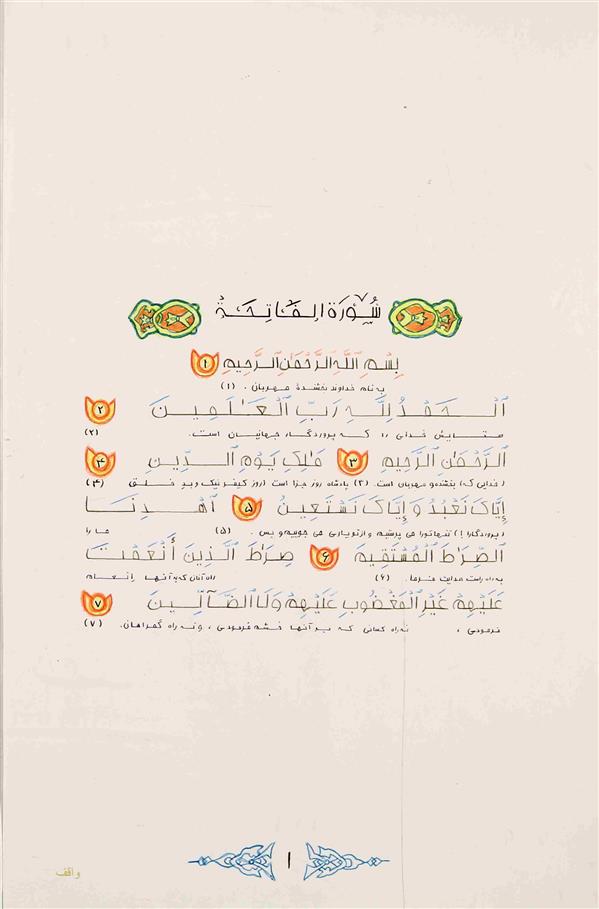 سُورَة الفَاتِحَةُ
بِسْمِ اللَّهِ الرَّحْمَٰنِ الرَّحِيمِ ۱
به نام خداوند بخشندهٔ مهربان . (۱)
اَلْحَمْدُ لِلَّهِ رَبِّ الْعَـٰلَمِينَ ۲
ستایش خدای را که پروردگار جهانیان است. (۲)
اَلرَّحْمَٰنِ الرَّحِيمِ ۳ مَـٰلِكِ يَوْمِ الدِّينِ ۴
(خدایی که) بخشنده و مهربان است. (۳) پادشاه روز جزا است (روز کیفر نیک و بد خلق) (۴)
إِيَّاكَ نَعْبُدُ وَ إِيَّاكَ نَسْتَعِينُ ۵ اَهْدِنَا
(پروردگارا!) تنها تو را می پرستیم و از تو یاری می جوییم و بس . (۵) ما را
الصِّرَاطَ الْمُسْتَقِيمَ ۶ صِرَاطَ الَّذِينَ أَنْعَمْتَ
به راه راست هدایت فرما. (۶) راه آنان که به آنها انعام
عَلَيْهِمْ غَيْرِ الْمَغْضُوبِ عَلَيْهِمْ وَلَا الضَّآلِّينَ ۷
فرمودی ، نه راه کسانی که بر آنها خشم فرمودی ، و نه راه گمراهان. (۷)
۱
واقف